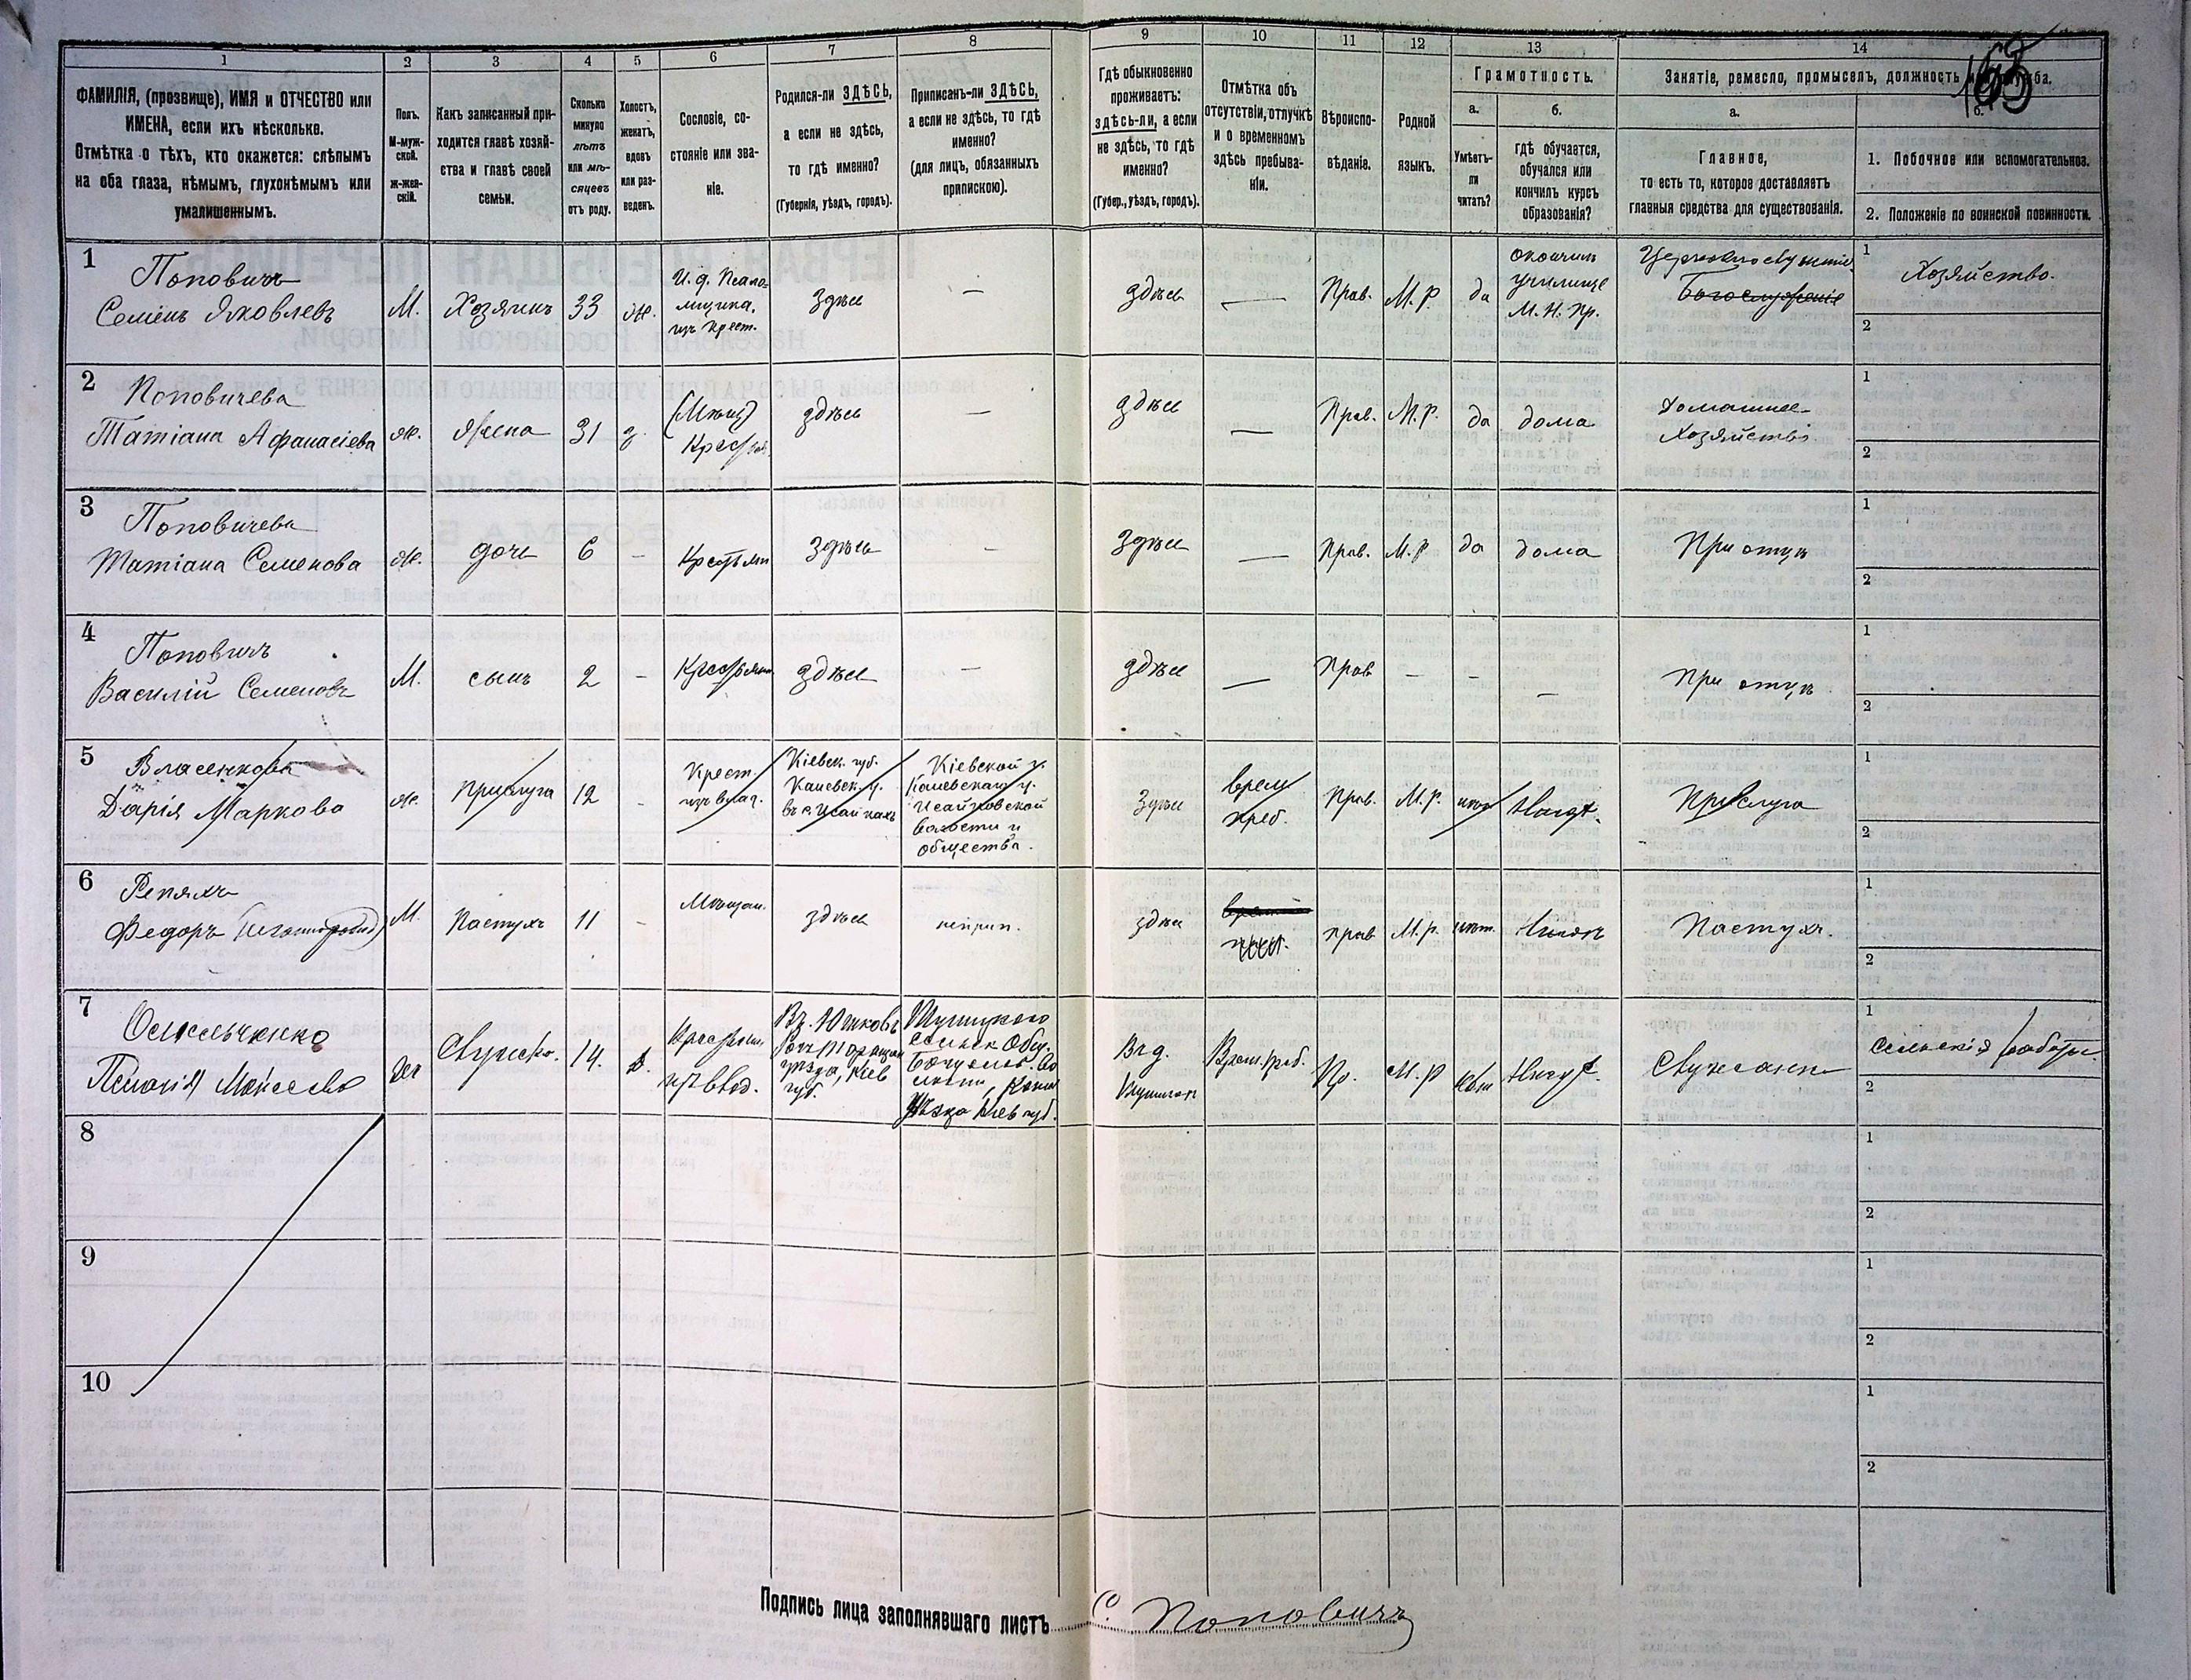 1 2 3 4 5 6 7 8 9 10 11 12 13 14
ФАМИЛІЯ, (прозвище), ИМЯ и ОТЧЕСТВО или
ИМЕНА, если ихъ нѣсколько.
Отмѣтка о тѣхъ, кто окажется: слѣпымъ
на оба глаза, нѣмымъ, глухонѣмымъ или
умалишеннымъ.
Полъ.
М-муж-
ской.
ж-жен-
скій.
Какъ записанный при-
ходится главѣ хозяй-
ства и главѣ своей
семьи.
Сколько
минуло
лѣтъ
или мѣ-
сяцевъ
отъ роду.
Холостъ,
женатъ,
вдовъ
или раз-
веденъ.
Сословіе, со-
стояніе или зва-
ніе.
Родился-ли ЗДѢСЬ,
а если не здѣсь,
то гдѣ именно?
(Губернія, уѣздъ, городъ).
Приписанъ-ли ЗДѢСЬ,
а если не здѣсь, то гдѣ
именно?
(для лицъ, обязанныхъ
припискою).
Гдѣ обыкновенно
проживаетъ:
здѣсь-ли, а если
не здѣсь, то гдѣ
именно?
(Губер., уѣздъ, городъ).
Отмѣтка объ
отсутствіи, отлучкѣ
и о временномъ
здѣсь пребыва-
ніи.
Вѣроиспо-
вѣданіе.
Родной
языкъ.
Грамотность.
а.
Умѣетъ-
ли
читать?
б.
гдѣ обучается,
обучался или
кончилъ курсъ
образованія?
Занятіе, ремесло, промыселъ, должность или служба.
а.
Главное,
то есть то, которое доставляетъ
главныя средства для существованія.
б.
1. Побочное или вспомогательное.
2. Положеніе по воинской повинности.
1
Поповичъ
Семенъ Яковлевъ
М.
Хозяинъ
33
ж.
И. д. Псало-
мщика,
изъ крест.
Здѣсь
—
здѣсь
—
Прав.
М. Р
да
окончилъ
училище
М. Н. Пр.
Богослуженіе
1
Хозяйство.
2
2
Поповичева
Татіана Афанасіева
ж.
Жена
31
з.
(Мѣщ)
здѣсь
—
здѣсь
—
Прав.
М. Р.
да
дома
Домашнее
Хозяйство
1
2
3
Поповичева
Татіана Семенова
ж.
дочь
6
-
Крестьян
Здѣсь
-
Здѣсь
—
Прав.
М. Р
да
дома
При отцѣ
1
2
4
Поповичъ
Василій Семеновъ
М.
сынъ
2
-
Крестьянин
здѣсь
—
здѣсь
—
Прав
-
-
-
При отцѣ
1
2
5
Власенкова
Дарія Маркова
ж.
Прислуга
12
-
Крест.
изъ влад.
Кіевск. губ.
Каневск. у.
въ с. Исайкахъ
Кіевской г.
Каневскаго у.
Исайковской
волости и
общества.
Здѣсь
врем
преб.
Прав.
М. Р.
Прислуга
1
2
6
Репяхъ
Федоръ
М.
Пастухъ
11
-
Мѣщан.
здѣсь
неприп.
здѣсь
прав
М. р.
Пастухъ.
1
2
7
Омельченко
Моисеева
14.
Крестьян.
изъ влад.
Кіев
губ.
Кіев губ.
Врем. преб.
Пр.
М. Р
1
Сельскія работы.
2
8
1
2
9
1
2
10
1
2
Подпись лица заполнявшаго листъ С. Поповичъ